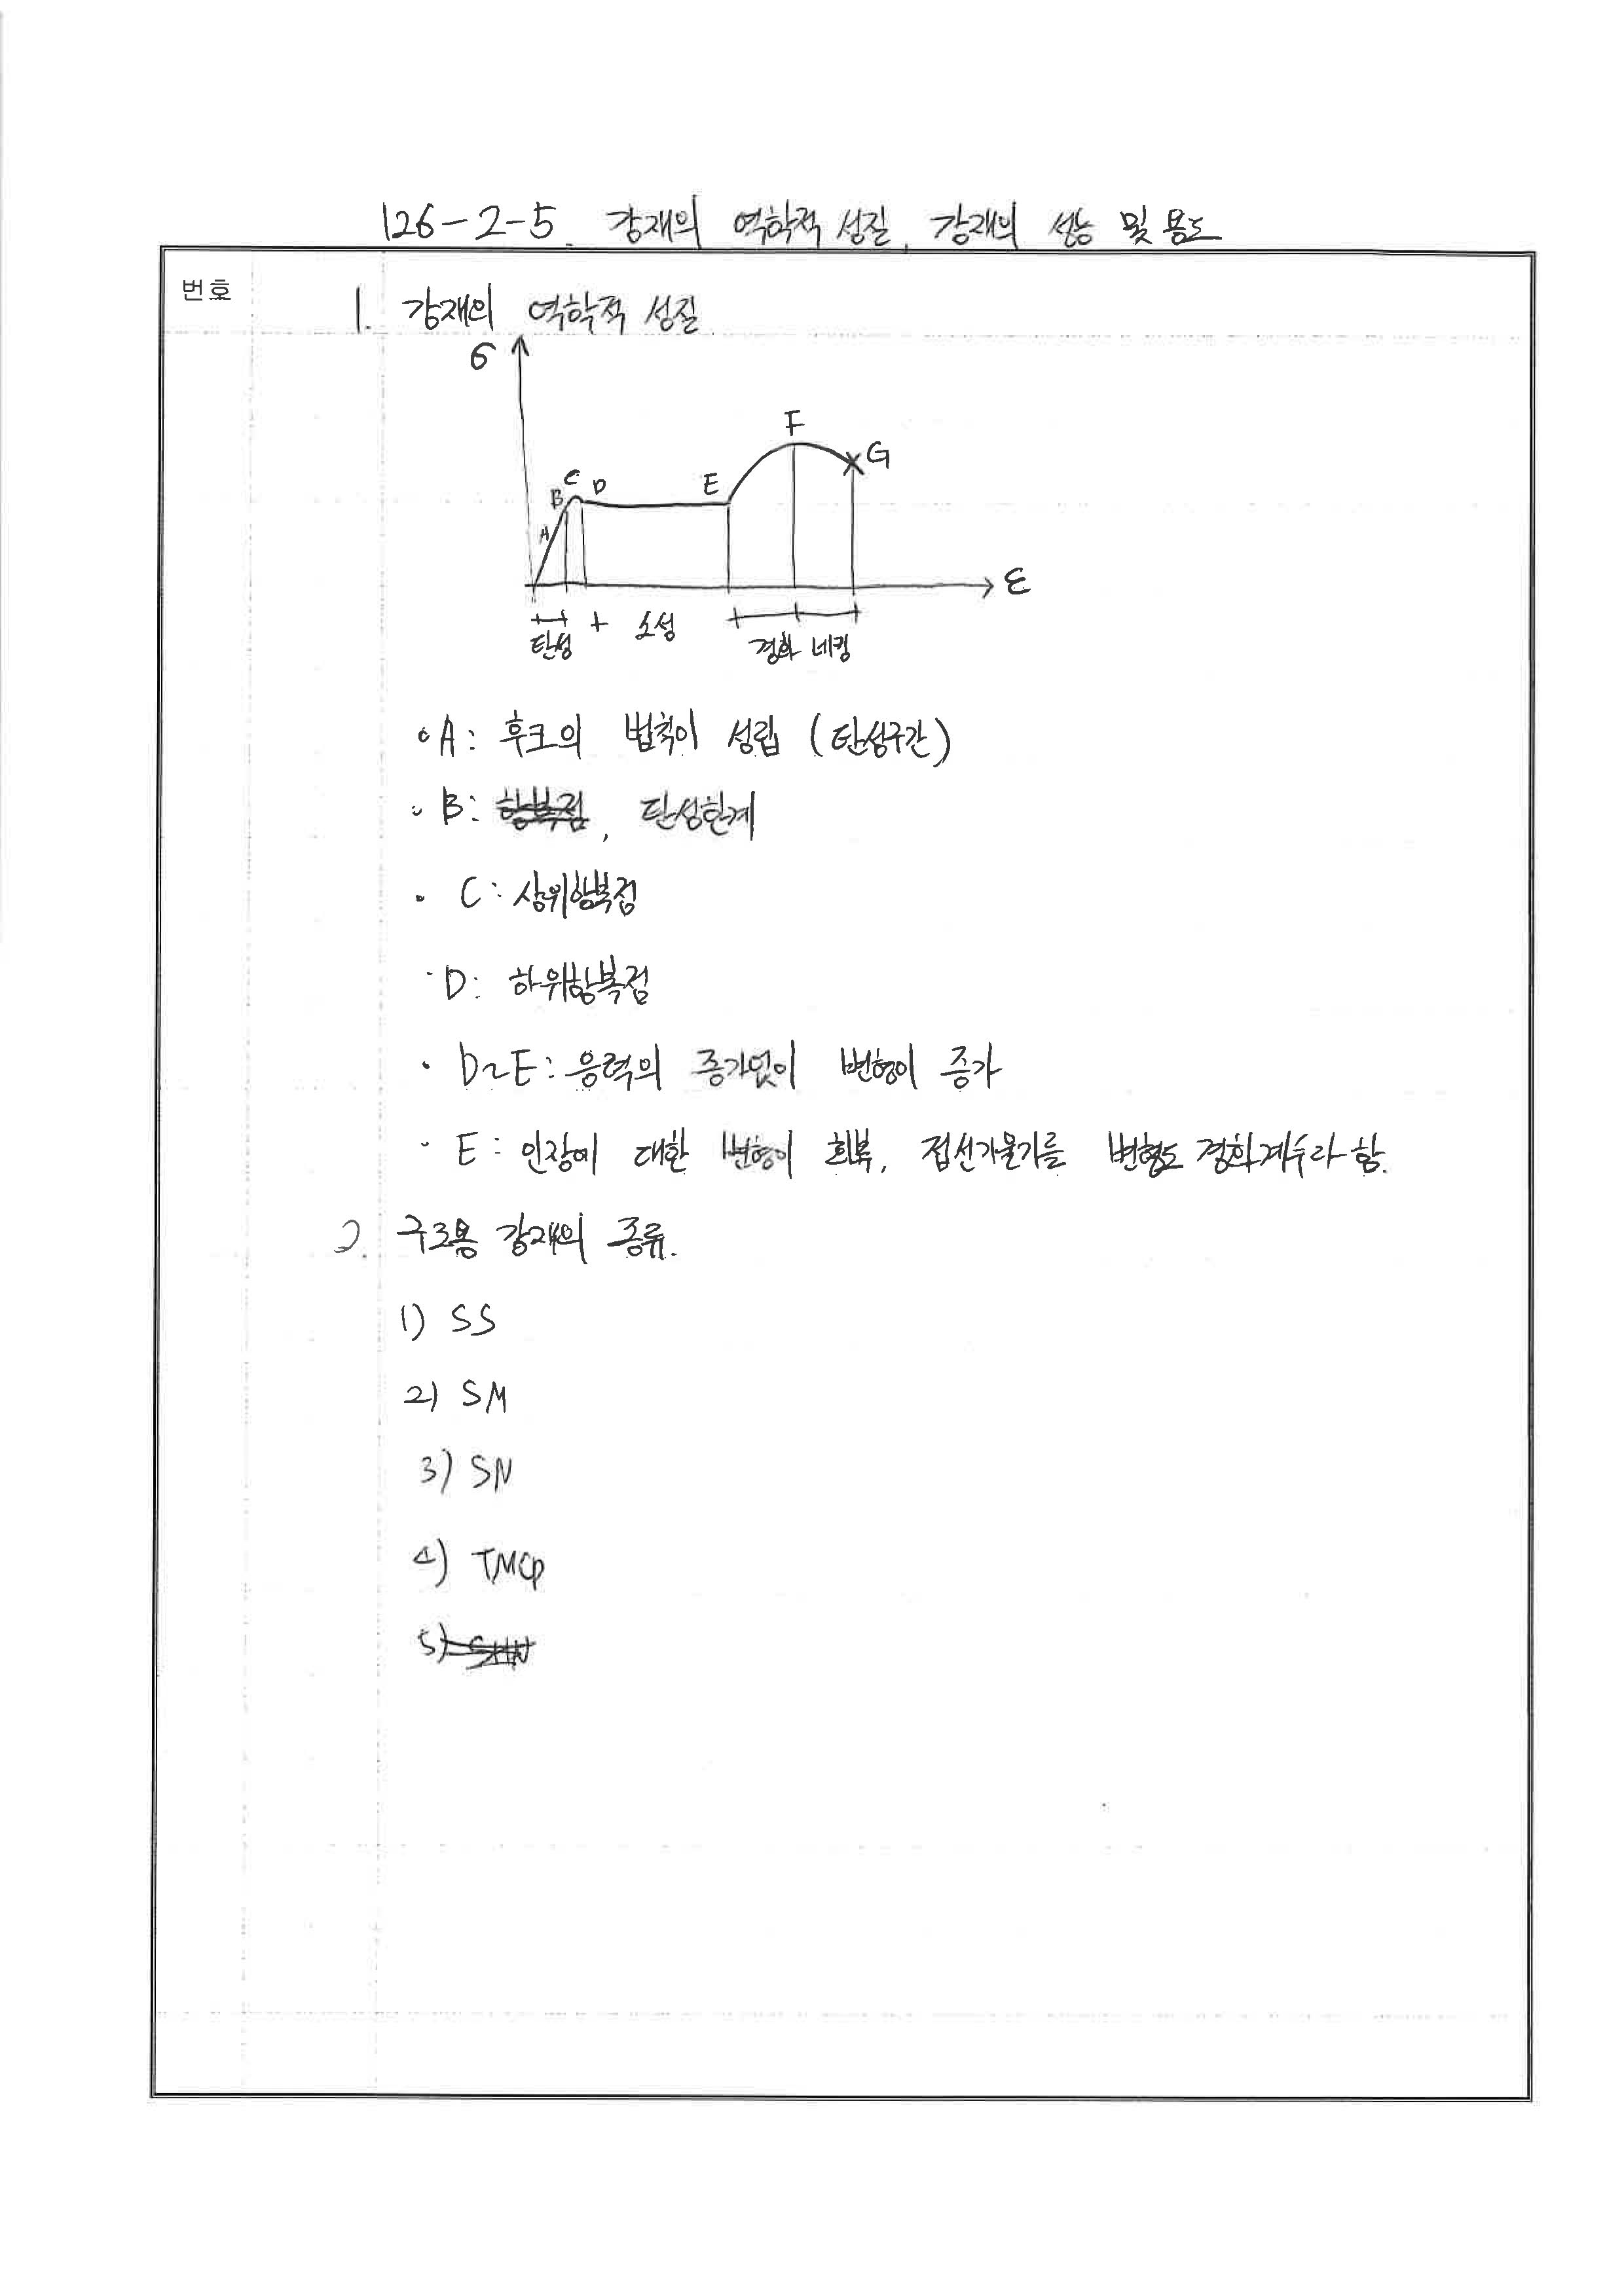 126-2-5. 강재의 역학적 성질, 강재의 성능 및 용도
번호
1. 강재의 역학적 성질
σ
F
G
C
B
D
E
A
ε
탄성 소성
경화 네킹
• A: 후크의 법칙이 성립 (탄성구간)
• B: 항복점, 탄성한계
• C: 상위항복점
• D: 하위항복점
• D~E: 응력의 증가없이 변형이 증가
• E: 인장에 대한 변형이 회복, 접선기울기를 변형도 경화계수라 함.
2. 구조용 강재의 종류.
1) SS
2) SM
3) SN
4) TMCP
5)